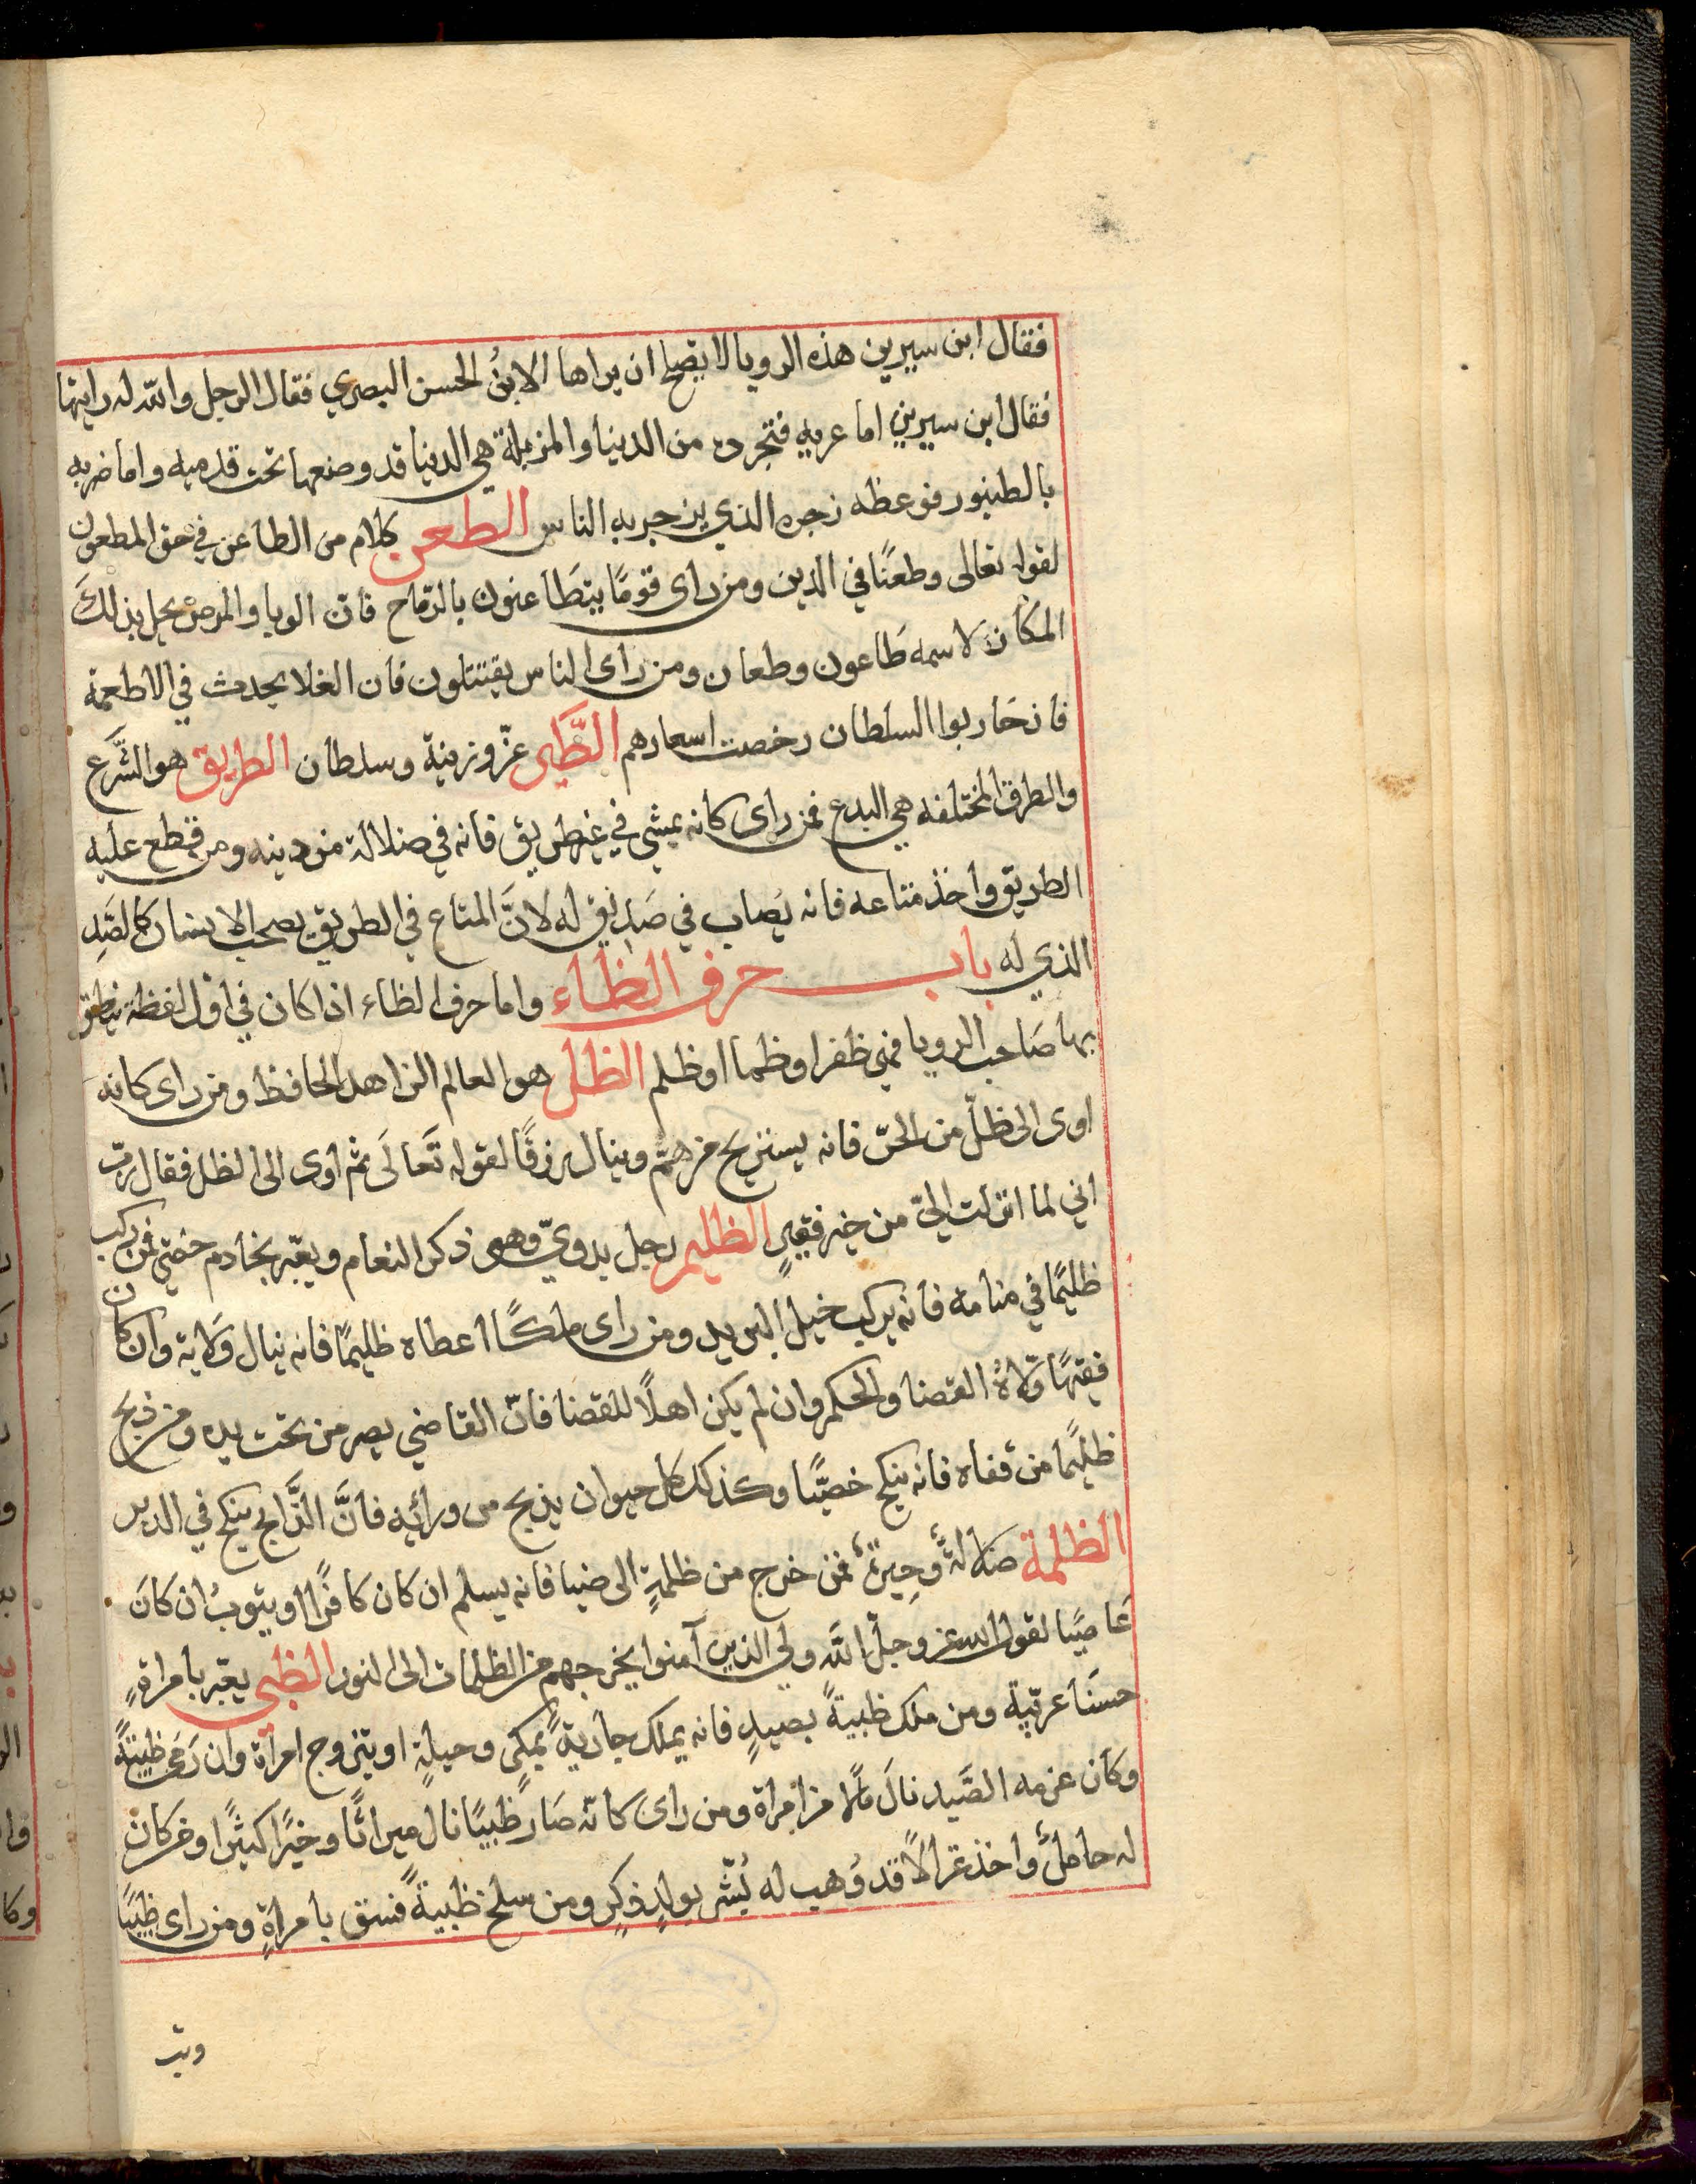 فقال ابن سيرين هذه الرويا لا يصح ان يراها الا ابنُ الحسن البصري فقال الرجل والله له رايتها
فقال ابن سيرين اما عريه فتجرده من الدينا والمزبلة هي الدينا قد وضعها تحت قدميه واما ضربه
بالطنبور فوعظه زجره الذي يزجر به الناس الطعن كلام من الطاعن في حق المطعون
لقوله تعالى وطعنًا في الدين ومن راى قومًا يتطَاعنون بالرّماح فانّ الوبا والمرض يحل بذلكَ
المكان لاسمه طَاعون وطعان ومن راى الناس يقتتلون فان الغلا يحدث في الاطعمة
فان حَاربوا السلطان رخصت اسعارهم الطَّير عزّ وزينة وسلطان الطريق هو الشّرع
والطرق المختلفه هي البدع فمن راى كانه يمشي في غير طريق فانه في ضلالة من دينه ومن قطع عليه
الطريق واخذ متاعه فانه يُصاب في صَدِيقٍ له لانَّ المتاع في الطريق يصحب الانسان كالصَّدِ
الذي له باب حرف الظاء واما حرف الظاء اذا كان في اوّل لفظة ينطق
بها صَاحب الرويا فهي ظفر او ظما او ظلم الظل هو العالم الزاهد الحافظ ومن راى كانه
اوى الى ظلّ من الحرّ فانه يستريح من همّ وينال رزقًا لقوله تَعالَى ثم اوى الى الظل فقال ربّ
اني لما انزلت اليّ من خير فقيرٍ الظليم رجل بدويّ وهو ذكر النعام ويعبّر بخادم خصيّ فمن ركب
ظليمًا في منامه فانه يركب خيل البريد ومن راى ملكًا اعطاه ظليمًا فانه ينال وَلاية وان كان
فقيهًا ولّاهُ القضا والحكم وان لم يكن اهلًا للقضا فانّ القاضي يصير من تحت يده ومن ذبح
ظليمًا من قفاه فانه ينكح خصيًّا وكذلك كل حيوان يذبح من ورائِه فانَّ الذَّابح ينكح في الدبر
الظلمة ضلالةٌ وَحِيرَةٌ فمن خرج من ظلمةٍ الى ضيا فانه يسلم ان كان كافرًا او يتوبُ ان كانَ
عَاصيًا لقول الله عز وجل الله ولي الذين آمنوا يخرجهم من الظلمات الى النور الظبي يعبّر بامراةٍ
حسَنا عربية ومن ملك ظبيةً بصيدٍ فانه يملك جاريةً بمكرٍ وحيلةٍ او يتزوج امراة وان رَمى ظبيةً
وكان عزمه الصَّيد نالَ مَالا من امراة ومن راى كانّه صَار ظبيًا نال ميراثًا وخيرًا كثيرًا ومن كان
له حاملٌ واخذ غزالًا قد وُهب له بُشّر بولدٍ ذكرٍ ومن سلخ ظبيةً فسق بامراةٍ ومن راى ظبيًا
وثب